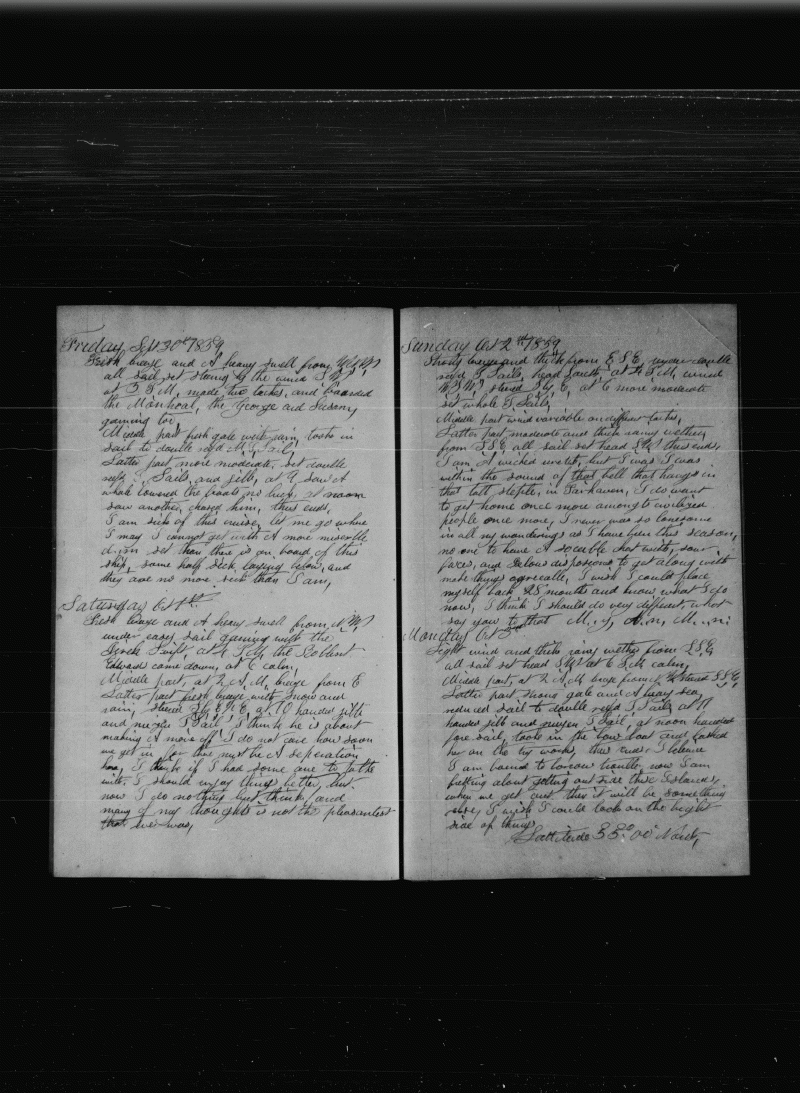 Friday Sept 30th 1859
Fresh breeze and A heavy swell from
all sail set steering by the wind
at 3 P.M. made two tacks, and boarded
the Montreal, the George and Susan,
gaming
Middle part fresh gale with rain, took in
sail to double reefd M. T. Sail,
Latter part more moderate. set double
reefd T. Sails and jibb, at 9 saw A
whale lowered the boats no luck, at noon
saw another, chased him, thus ends.
I am sick of this cruise, let me go where
I may I cannot get with A more miserble
set than there is on board of this
ship, some half sick laying below, and
they are no more sick than I am,
Saturday Oct 1st
Fresh breeze and A heavy swell from N.W.
under easy sail gaming with the
Swift, at 4 P.M. the Robbert
Edwards came down, at 6 calm,
Middle part, at 2 A.M. breeze from E
Latter part fresh breeze with snow and
rain, steered at 10 handed jibb
and T Sail, I think he is about
making A move off, I do not care how soon
we get in for there must be A seperation
I think if I had some one to talk
with, I should enjoy things better, but
now I do nothing but think, and
many of my thoughts is not the pleasantest
that ever was,
Sunday Oct 2nd 1859
Strong breeze and thick from E.S.E, under double
reefd T. Sails, head South, at 4 P.M. wind
steered at 6 more moderate
set whole T. Sails,
Middle part wind variable on diffrent tacks,
Latter part moderate and thick rainy wether,
from S.S.E all sail set head S.W. thus ends,
I am A wicked but I wish I was
within the sound of that bell that hangs in
that tall steple, in Fairhaven, I do want
to get home once more amongst civilized
people once more, I never was so lonesome
in all my wanderings as I have been this season,
no one to have A sociable chat with, sour
faces, and Jelous disposions to get along with
make things agreeable, I wish I could place
myself back 28 months and know what I do
now, I think I should do very diffrent, what
say you to that
Monday Oct 3
Light wind and thick rainy wether from S.S.E,
all sail set head S.W. at 6 P.M calm,
Middle part, at 2 A.M breeze from steered S.S.E,
Latter part strong gale and A heavy sea,
reduced sail to double reefd T Sails at 11
handed jibb and mizzen T Sail, at noon handed
fore sail, took in the bow boat and lashed
her on the try works, thus ends I believe
I am bound to borrow trouble, now I am
fretting about getting outside these Islands,
when we get out this it will be something
I wish I could look on the bright
side of things
Lattitude 53° 00 North,